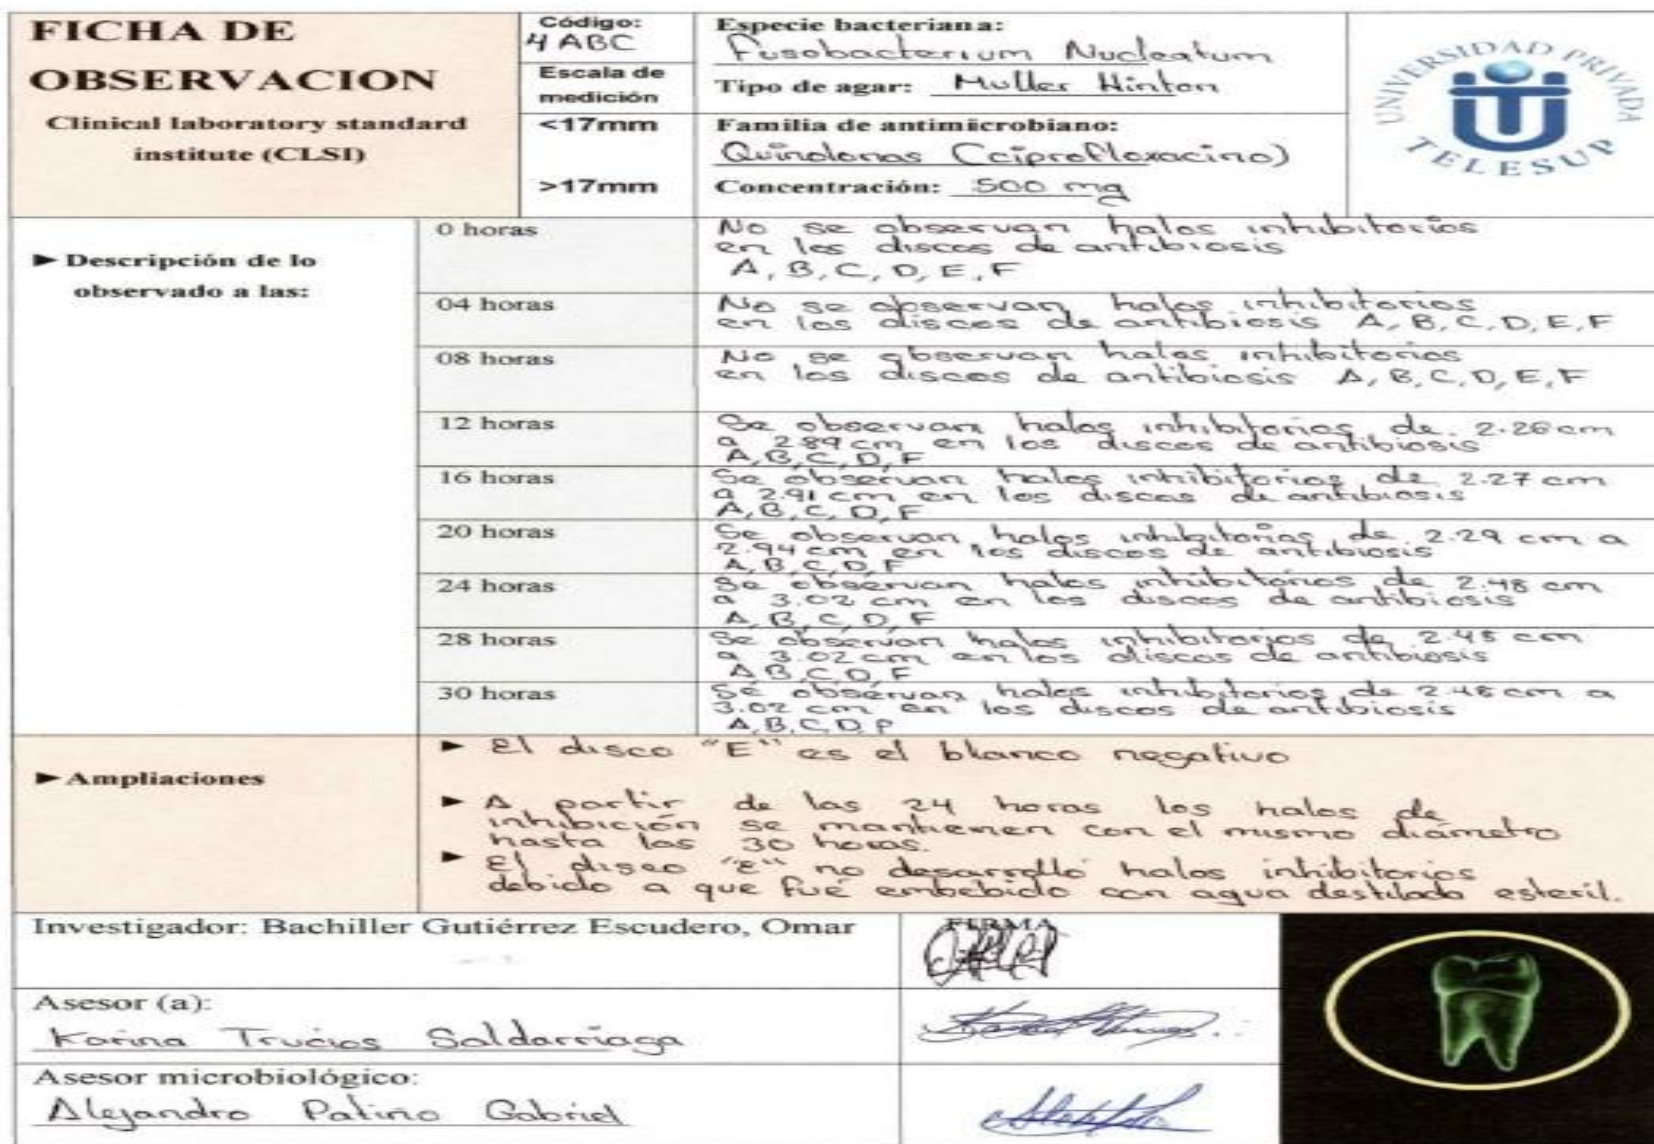 FICHA DE
OBSERVACION
Clinical laboratory standard
institute (CLSI)
Código:
4 ABC
Escala de
medición
<17mm
>17mm
Especie bacteriana:
Fusobacterium Nucleatum
Tipo de agar: Muller Hinton
Familia de antimicrobiano:
Quinolonas (ciprofloxacino)
Concentración: 500 mg
UNIVERSIDAD PRIVADA
TELESUP
►Descripción de lo
observado a las:
0 horas
No se observan halos inhibitorios
en los discos de antibiosis
A, B, C, D, E, F
04 horas
No se observan halos inhibitorios
en los discos de antibiosis A, B, C, D, E, F
08 horas
No se observan halos inhibitorios
en los discos de antibiosis A, B, C, D, E, F
12 horas
Se observan halos inhibitorios de 2.26 cm
a 2.89 cm en los discos de antibiosis
A, B, C, D, F
16 horas
Se observan halos inhibitorios de 2.27 cm
a 2.91 cm en los discos de antibiosis
A, B, C, D, F
20 horas
Se observan halos inhibitorios de 2.29 cm a
2.94 cm en los discos de antibiosis
A, B, C, D, F
24 horas
Se observan halos inhibitorios de 2.48 cm
a 3.02 cm en los discos de antibiosis
A, B, C, D, F
28 horas
Se observan halos inhibitorios de 2.48 cm
a 3.02 cm en los discos de antibiosis
A B, C, D, F
30 horas
Se observan halos inhibitorios de 2.48 cm a
3.02 cm en los discos de antibiosis
A, B, C, D, F
►Ampliaciones
► El disco "E" es el blanco negativo
► A partir de las 24 horas los halos de
inhibición se mantienen con el mismo diámetro
hasta las 30 horas.
► El disco "E" no desarrolló halos inhibitorios
debido a que fué embebido con agua destilada esteril.
Investigador: Bachiller Gutiérrez Escudero, Omar
FIRMA
Asesor (a):
Karina Trucios Saldarriaga
Asesor microbiológico:
Alejandro Patiño Gabriel